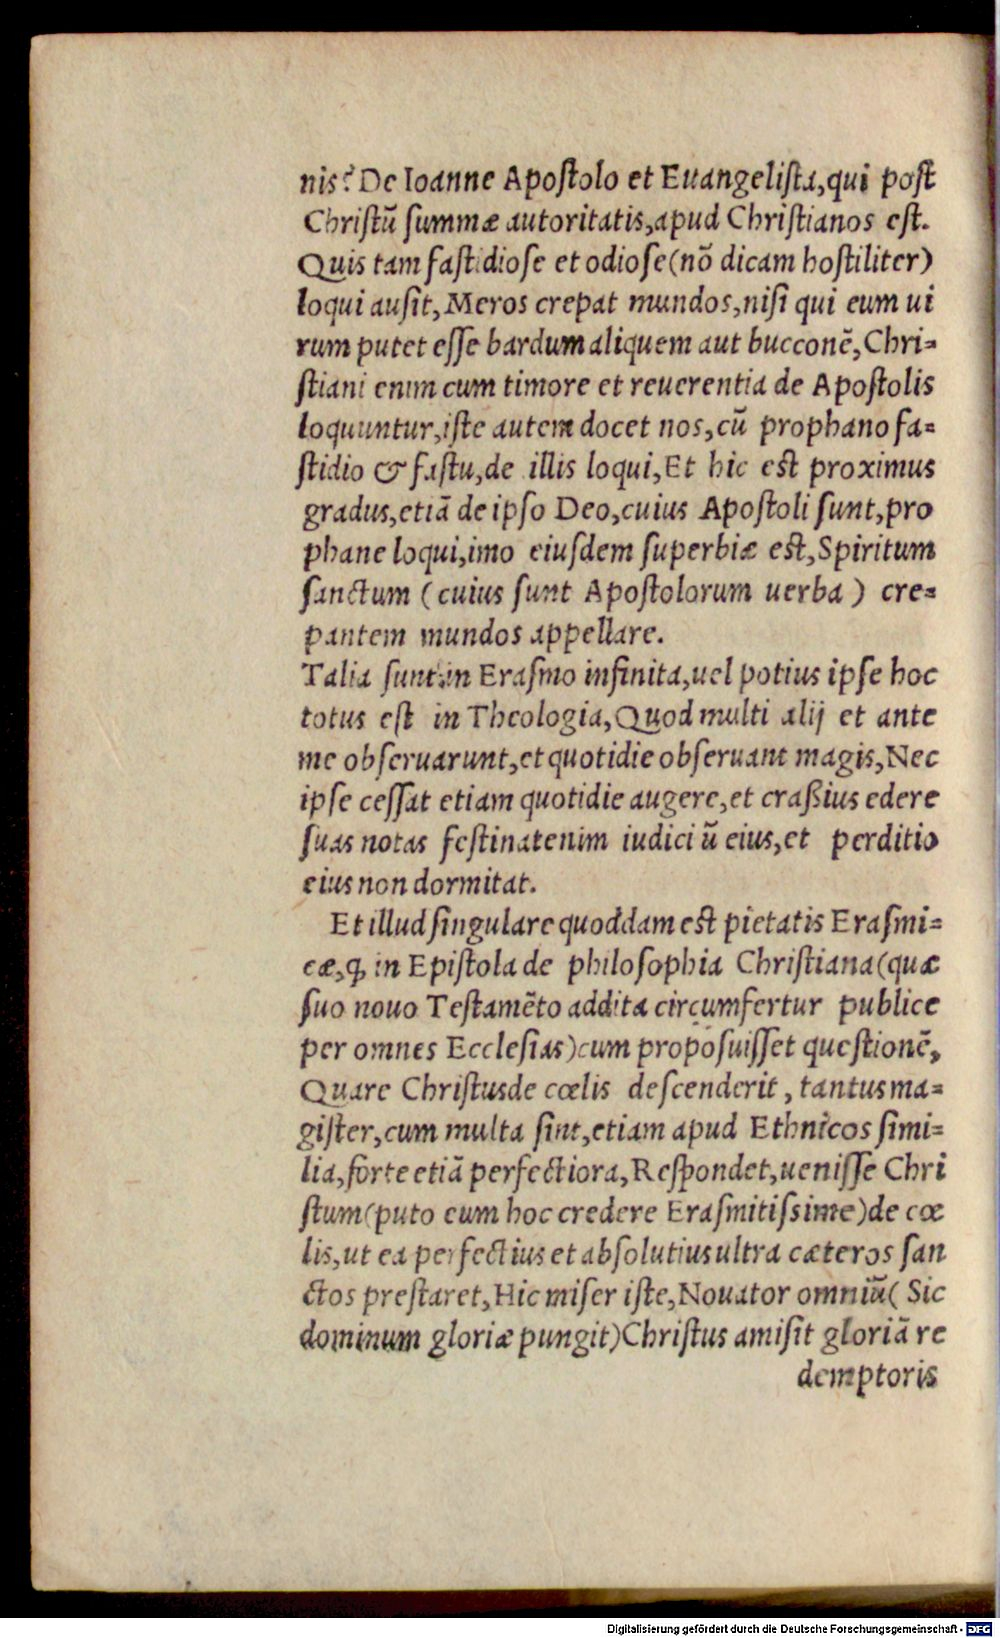 nis? De Ioanne Apoſtolo et Euangeliſta, qui poſt
Chriſtũ ſummæ autoritatis, apud Chriſtianos eſt.
Quis tam faſtidioſe et odioſe (nõ dicam hoſtiliter)
loqui auſit, Meros crepat mundos, niſi qui eum ui
rum putet eſſe bardum aliquem aut bucconẽ, Chri-
ſtiani enim cum timore et reuerentia de Apoſtolis
loquuntur, iſte autem docet nos, cũ prophano fa-
ſtidio & faſtu, de illis loqui, Et hic eſt proximus
gradus, etiã de ipſo Deo, cuius Apoſtoli ſunt, pro
phane loqui, imo eiuſdem ſuperbiæ eſt, Spiritum
ſanctum ( cuius ſunt Apoſtolorum uerba ) cre-
pantem mundos appellare.
Talia ſunt in Eraſmo infinita, uel potius ipſe hoc
totus eſt in Theologia, Quod multi alij et ante
me obſeruarunt, et quotidie obſeruant magis, Nec
ipſe ceſſat etiam quotidie augere, et craßius edere
ſuas notas feſtinat enim iudiciũ eius, et perditio
eius non dormitat.
Et illud ſingulare quoddam eſt pietatis Eraſmi-
cæ, ꝙ in Epiſtola de philoſophia Chriſtiana (quæ
ſuo nouo Teſtamẽto addita circumfertur publice
per omnes Eccleſias) cum propoſuiſſet queſtionẽ,
Quare Chriſtus de cœlis deſcenderit, tantus ma-
giſter, cum multa ſint, etiam apud Ethnicos ſimi-
lia, forte etiã perfectiora, Reſpondet, ueniſſe Chri
ſtum (puto eum hoc credere Eraſmitiſsime) de cœ
lis, ut ea perfectius et abſolutius ultra cæteros ſan
ctos preſtaret, Hic miſer iſte, Nouator omniũ ( Sic
dominum gloriæ pungit) Chriſtus amiſit gloriã re
demptoris
Digitalisierung gefördert durch die Deutsche Forschungsgemeinschaft - DFG